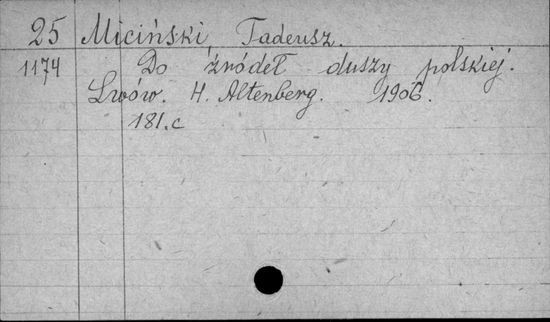 25 Miciński Tadeusz.
1174 Do źródeł duszy polskiej.
Lwów. H. Altenberg. 1906.
181.c